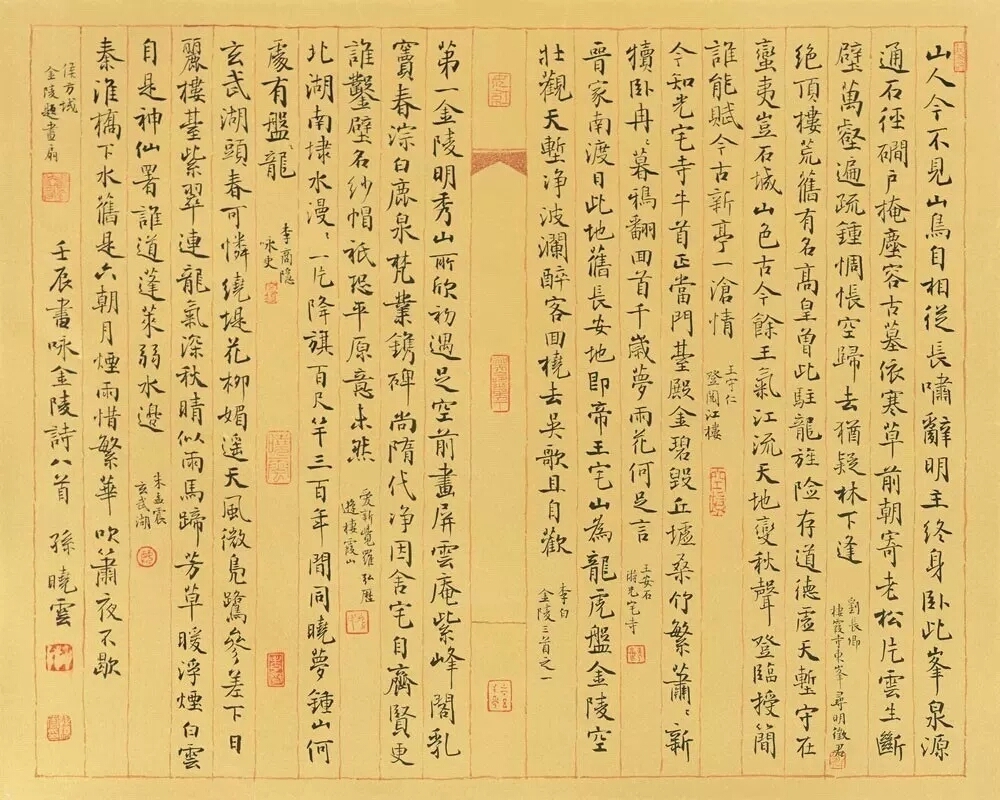 山人今不見山鳥自相從長嘯辭明王終身臥此峯泉源
通石徑磵戶掩塵容古墓依寒草前朝寄老松片雲生斷
壁萬壑遍疏鍾惆悵空歸去猶疑林下逢
劉長卿
棲霞寺東峯尋明徵君
絶頂樓荒舊有名高皇曾此駐龍旌險存道德虛天塹守在
蠻夷豈石城山色古今餘王氣江流天地變秋聲登臨授簡
誰能賦今古新亭一滄情
王守仁
登閱江樓
今知光宅寺牛首正當門臺殿金碧毀丘墟桑竹繁蕭〻新
犢臥冉〻暮鴉翻回首千歲夢雨花何足言
王安石
游光宅寺
晉家南渡日此地舊長安地即帝王宅山為龍虎盤金陵空
壯觀天塹淨波瀾醉客回橈去吳歌且自歡
李白
金陵三首之一
第一金陵明秀山所欣初遇足空前畫屏雲庵紫峰閣乳
竇春淙白鹿泉梵業鐫碑尚隋代淨因舍宅自齊賢更
誰鑿壁名紗帽祇恐平原意未然
愛新覺羅弘曆
遊棲霞山
北湖南埭水漫〻一片降旗百尺竿三百年間同曉夢鍾山何
處有盤龍
李商隱
咏史
玄武湖頭春可憐繞堤花柳媚遥天風微鳧鷺參差下日
麗樓臺紫翠連龍氣深秋晴似雨馬蹄芳草暖浮煙白雲
自是神仙署誰道蓬萊弱水邊
朱孟震
玄武湖
秦淮橋下水舊是六朝月煙雨惜繁華吹簫夜不歇
侯方域
金陵題畫扇
壬辰書咏金陵詩八首 孫曉雲